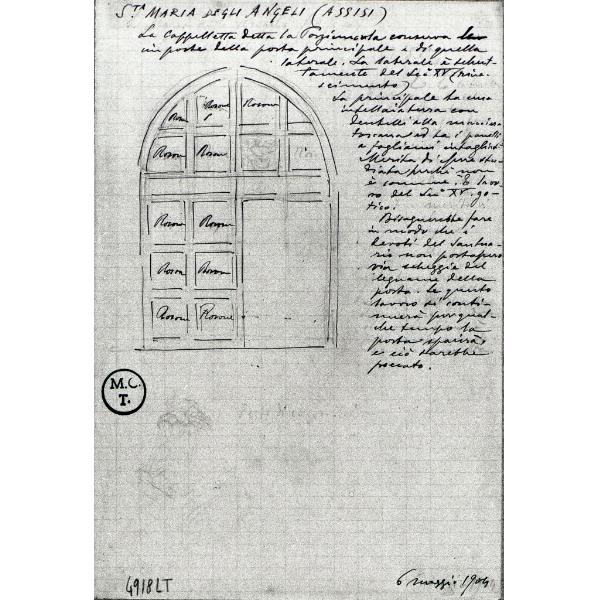 S.TA MARIA DEGLI ANGELI (ASSISI)
La cappelletta detta la Porziuncola conserva le
imposte della porta principale e di quella
laterale. La laterale è schiet-
tamente del Sec° XV (rina-
scimento)
La principale ha una
intellaiatura con
dentelli alla maniera
toscana ed ha i panelli
a fogliami intagliati
Merita di essere stu-
diata perchè non
è comune. È lavo-
ro del Sec° XV. go-
tico.
Bisognerebbe fare
in modo che i
devoti del Santua-
rio non portassero
via scheggie del
legname della
porta. Se questo
lavoro si conti-
nuerà per qual-
che tempo la
porta sparirà
e ciò sarebbe
peccato.
Rosone Rosone Rosone
Rosone Rosone Ro
Rosone Rosone
Rosone Rosone
Rosone Rosone
M.C.
T.
4918LT
6 maggio 1904